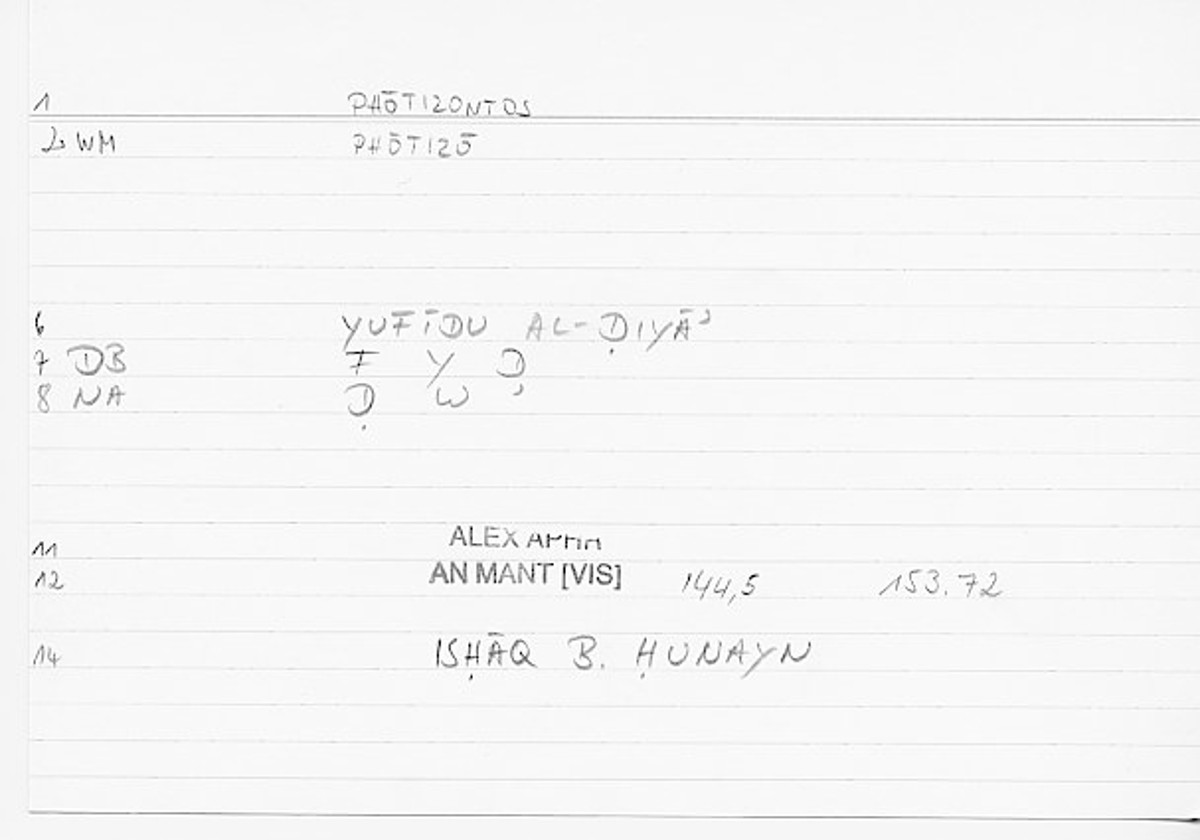 1 PHŌTIZONTOS
2 WM PHŌTIZŌ
6 YUFĪDU AL-ḌIYĀʾ
7 DB F Y D
8 NA Ḍ W ʾ
11 ALEX APHR
12 AN MANT [VIS] 144,5 153.72
14 ISḤĀQ B. ḤUNAYN